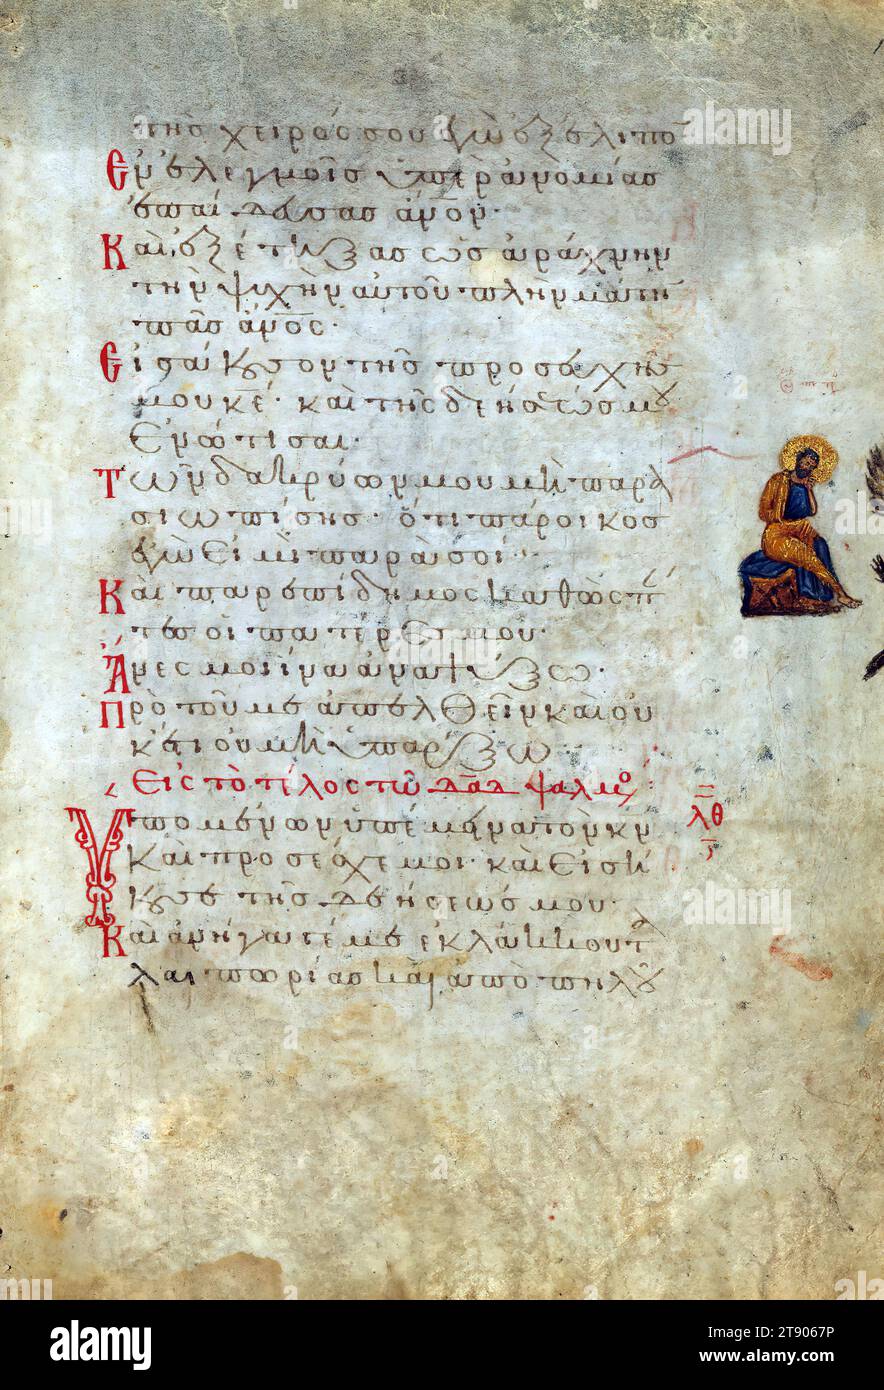 της χειρός σου ἐγὼ ἐξέλιπο
Ἐν ἐλεγμοῖς ὑπὲρ ἀνομίας
ἐπαίδευσας ἄνον·
Καὶ ἐξέτηξας ὡς ἀράχνην
τὴν ψυχὴν αὐτοῦ πλὴν μάτην
πᾶς ἄνος·
Εἰσάκουσον τῆς προσευχῆς
μου κε· καὶ τῆς δεήσεώς μου
ἐνώτισαι·
Τῶν δακρύων μου μὴ παρα
σιωπίσης· ὅτι πάροικος
ἐγώ εἰμι παρὰ σοί·
Καὶ παρεπίδημος καθὼς π
τες οἱ πατέρες μου·
Ἄνες μοι ἵνα ἀναψύξω·
Πρὸ τοῦ με ἀπελθεῖν καὶ οὐ
κέτι οὐ μὴ ὑπάρξω
Εἰς τὸ τέλος τῷ δαδ ψαλμος
Ὑπομένων ὑπέμεινα τὸν κν
λθ
Καὶ προσέσχε μοι· καὶ εἰσή
κουσε τῆς δεήσεώς μου·
Καὶ ἀνήγαγέ με ἐκ λάκκου τα
λαιπωρίας καὶ ἀπὸ πηλοῦ
alamy
alamy
Image ID: 2T9067P
www.alamy.com